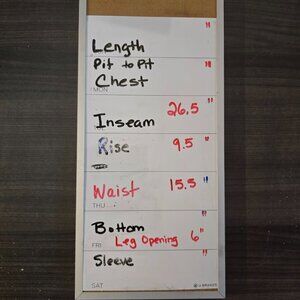 Length "
Pit to Pit "
Chest
MON
Inseam 26.5 "
Rise 9.5 "
Waist 15.5 "
THU
Bottom "
FRI Leg Opening 6"
Sleeve "
SAT U BRANDS